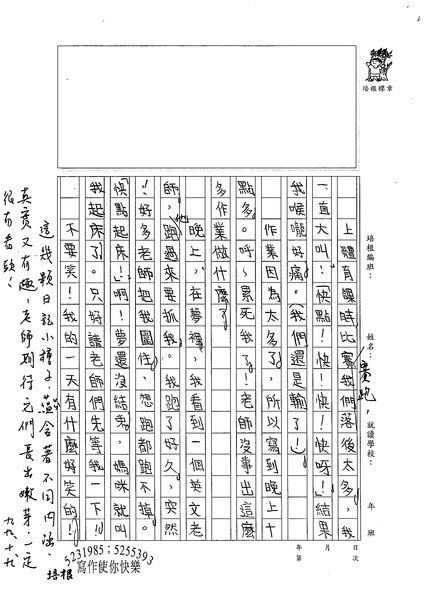 培根標章
培根編班：
姓名：
就讀學校：
年 班
年 月 日
第 次
上體育課時比賽我們落後太多，我
一直大叫！「快點！快！快呀！」結果
我喉嚨好痛。（我們還是輸了！）
作業因為太多了，所以寫到晚上十
點多。呼～累死我了！老師沒事出這麼
多作業做什麼？
晚上，在夢裡，我看到一個英文老
師，他跑過來要抓我。我跑了好久，突然
！好多老師把我圍住，想跑都跑不掉。
「快點起床！」啊！夢還沒結束，媽咪就叫
我起床了。只好請老師們先等我一下！
不要笑！我的一天有什麼好笑的！
這幾顆日記小種子，蘊含著不同內涵，
真實又有趣，老師期待它們長出嫩芽，一定
很有看頭！
九九、十、九
5231985；5255393
培根 寫作使你快樂